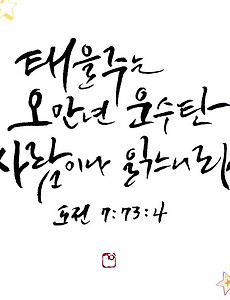 태을주는
오만년 운수탄
사람이나 읽느니라
도전 7:73:4